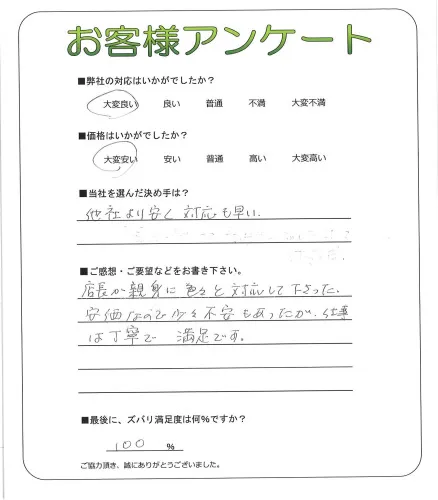 お客様アンケート
■弊社の対応はいかがでしたか？
大変良い 良い 普通 不満 大変不満
■価格はいかがでしたか？
大変安い 安い 普通 高い 大変高い
■当社を選んだ決め手は？
他社より安く 対応も早い.
■ご感想・ご要望などをお書き下さい。
店長が親身に色々と対応して下さった.
安価なので少々不安もあったが、仕事
は丁寧で 満足です。
■最後に、ズバリ満足度は何％ですか？
100 %
ご協力頂き、誠にありがとうございました。